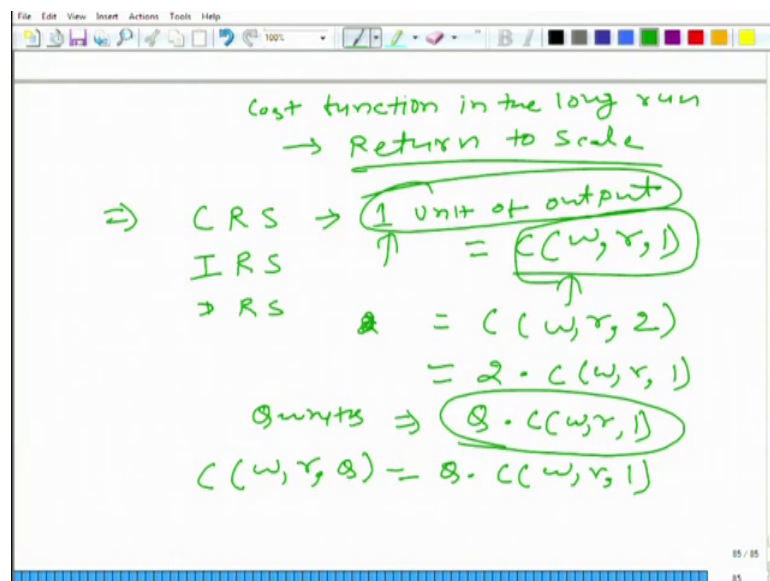 File Edit View Insert Actions Tools Help
100%
B I
Cost function in the long run
→ Return to Scale
⇒ CRS → 1 unit of output
IRS = C(w, r, 1)
DRS
2 = C(w, r, 2)
= 2 · C(w, r, 1)
Q units ⇒ Q · C(w, r, 1)
C(w, r, Q) = Q · C(w, r, 1)
85 / 85
85